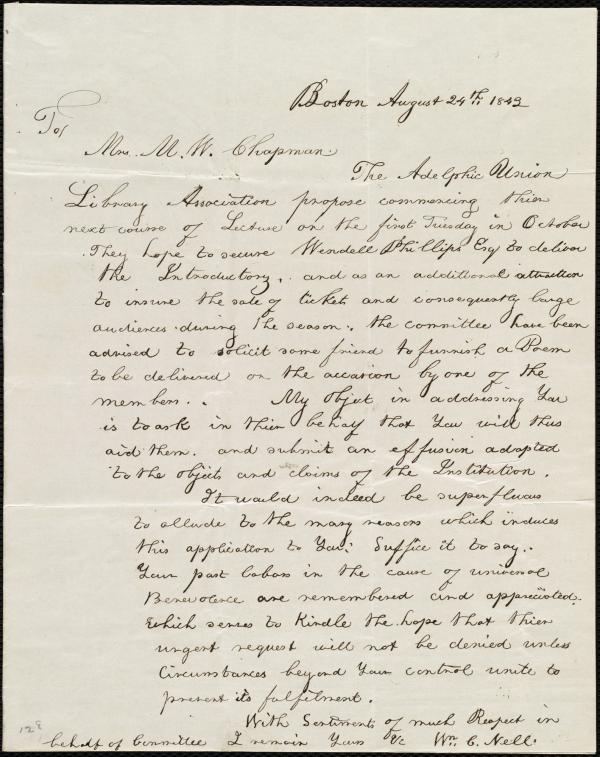 Boston August 24th 1843
To/
Mrs. M. W. Chapman.
The Adelphic Union
Library Association propose commencing thier
next course of Lecture on the first Tuesday in October
They hope to secure Wendell Phillips Esq to deliver
the Introductory, and as an additional attraction
to insure the sale of tickets and consequently large
audiences during the season, the committee have been
advised to solicit some friend to furnish a Poem
to be delivered on the occasion by one of the
members.. My object in addressing You
is to ask in thier behalf that You will thus
aid them. and submit an effusion adapted
to the objects and claims of the Institution.
It would indeed be superfluous
to allude to the many reasons which induces
this application to You: Suffice it to say..
Your past labors in the cause of universal
Benevolence are remembered and appreciated.
Which serves to Kindle the hope that thier
urgent request will not be denied unless
Circumstances beyond Your control unite to
prevent its fulfilment.
With Sentiments of much Respect in
behalf of Committee I remain Yours &c Wm. C. Nell.
128